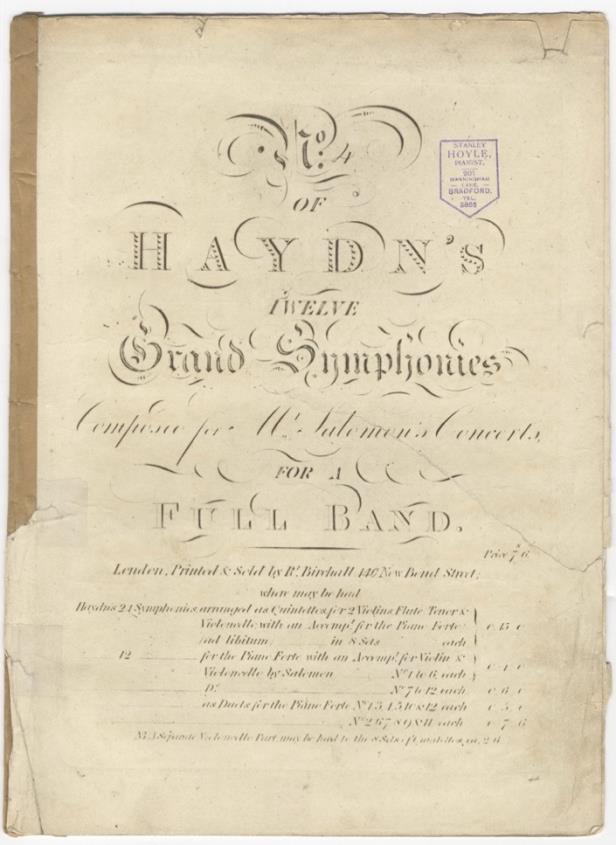 No. 4
STANLEY
HOYLE,
PIANIST,
201
MANNINGHAM
LANE,
BRADFORD.
TEL.
OF
HAYDN'S
TWELVE
Grand Symphonies
Composed for Mr. Salomon's Concerts,
FOR A
FULL BAND.
Price 7s 6
London, Printed & Sold by Rt. Birchall 140 New Bond Street;
where may be had
Haydn's 24 Symphonies, arranged as Quintettos for 2 Violins Flute Tenor &
Violoncello, with an Accompt. for the Piano Forte
(ad libitum) in 8 Sets each 0 15 0
12 for the Piano Forte with an Accompt. for Violin &
Violoncello by Salomon No. 1 to 6, each
Do. No. 7 to 12 each 0 6 0
as Duets for the Piano Forte each 0 5 0
each 0 7 6
NB. A Separate Violoncello Part, may be had to the 8 Sets of Quintettos, 2 6